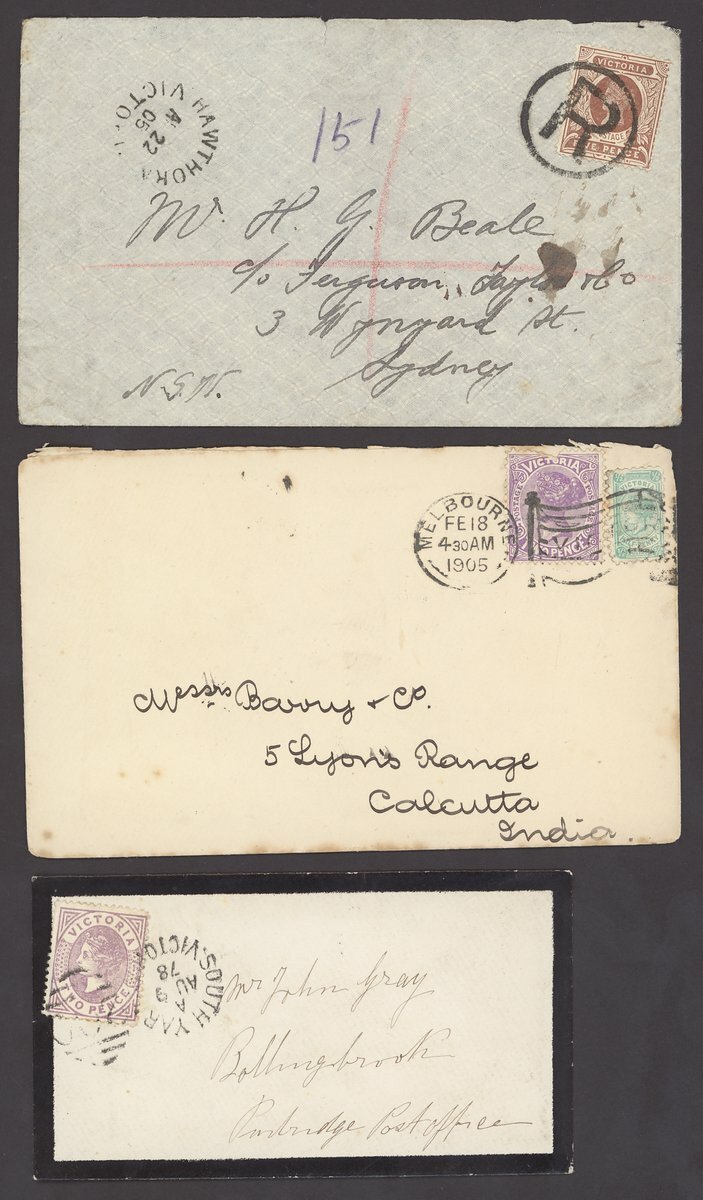 HAWTHORN
VICTO
22
05
151
VICTORIA
POSTAGE
FIVE PENCE
R
Mr. H. G. Beale
c/o Ferguson, Taylor & Co
3 Wynyard St.
Sydney
N.S.W.
MELBOURNE
FE 18
4-30 AM
1905
VICTORIA
POSTAGE
PENCE
VICTORIA
Messrs Barry & Co.
5 Lyon's Range
Calcutta
India.
VICTORIA
TWO PENCE
SOUTH YAR
VICTO
A
AU 9
78
Mr John Gray
Bollingsbrook
Post office